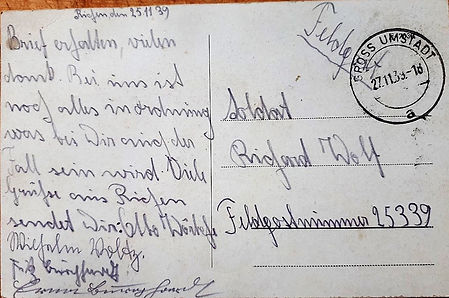 Riehen den 25 11 39
Brief erhalten, vielen
dank. Bei uns ist
noch alles in ordnung
was bei Dir auch der
Fall sein wird. Viele
Grüße aus Riehen
sendet Dir: Otto
Wilhelm
Feldpost
GROSS UMSTADT
27.11.39-18
a
Soldat
Richard Wolf
Feldpostnummer 25339